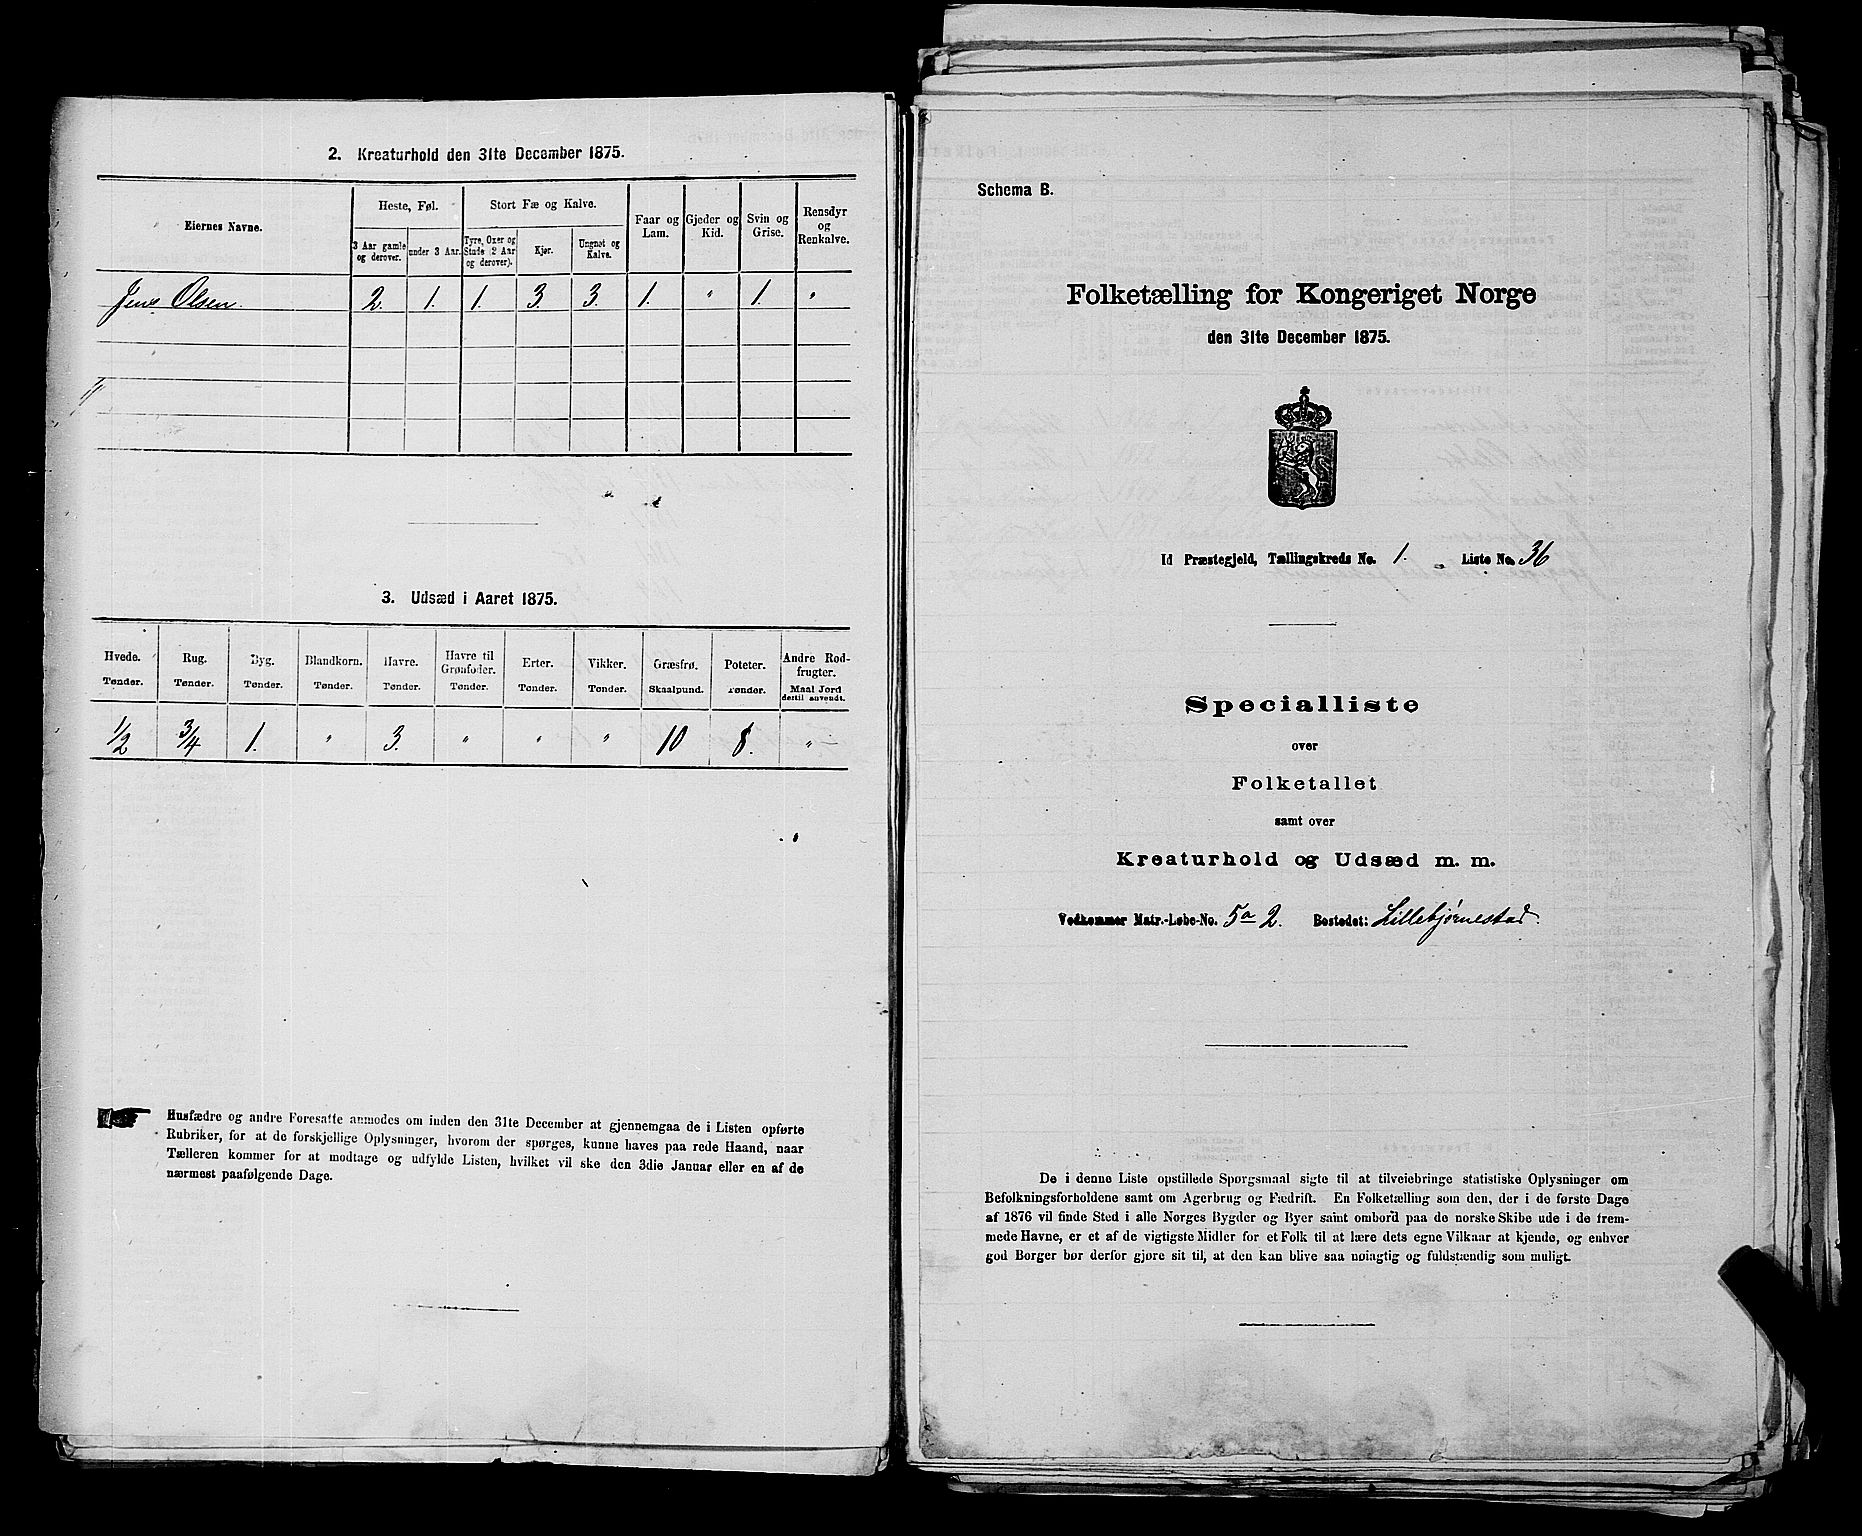 2. Kreaturhold den 31te December 1875.
Eiernes Navne.
Heste, Føl.
Stort Fæ og Kalve.
Faar og Lam.
Gjeder og Kid.
Svin og Grise.
Rensdyr og Renkalve.
3 Aar gamle og derover.
under 3 Aar.
Tyre, Oxer og Stude (2 Aar og derover).
Kjør.
Ungnøt og Kalve.
Jens Olsen. 2. 1. 1. 3. 3. 1. " 1. "
3. Udsæd i Aaret 1875.
Hvede. Rug. Byg. Blandkorn. Havre. Havre til Grønfoder. Erter. Vikker. Græsfrø. Poteter. Andre Rodfrugter.
Tønder. Tønder. Tønder. Tønder. Tønder. Tønder. Tønder. Tønder. Skaalpund. Tønder. Maal Jord dertil anvendt.
1/2 3/4 1. " 3. " " " 10 8. "
Husfædre og andre Foresatte anmodes om inden den 31te December at gjennemgaa de i Listen opførte
Rubriker, for at de forskjellige Oplysninger, hvorom der spørges, kunne haves paa rede Haand, naar
Tælleren kommer for at modtage og udfylde Listen, hvilket vil ske den 3die Januar eller en af de
nærmest paafølgende Dage.
Schema B.
Folketælling for Kongeriget Norge
den 31te December 1875.
Id Præstegjeld, Tællingskreds No. 1. Liste No. 36
Specialliste
over
Folketallet
samt over
Kreaturhold og Udsæd m. m.
Vedkommer Matr.-Løbe-No. 5a 2. Bostedet: Lillebjørnestad.
De i denne Liste opstillede Spørgsmaal sigte til at tilveiebringe statistiske Oplysninger om
Befolkningsforholdene samt om Agerbrug og Fædrift. En Folketælling som den, der i de første Dage
af 1876 vil finde Sted i alle Norges Bygder og Byer samt ombord paa de norske Skibe ude i de frem-
mede Havne, er et af de vigtigste Midler for et Folk til at lære dets egne Vilkaar at kjende, og enhver
god Borger bør derfor gjøre sit til, at den kan blive saa nøiagtig og fuldstændig som muligt.